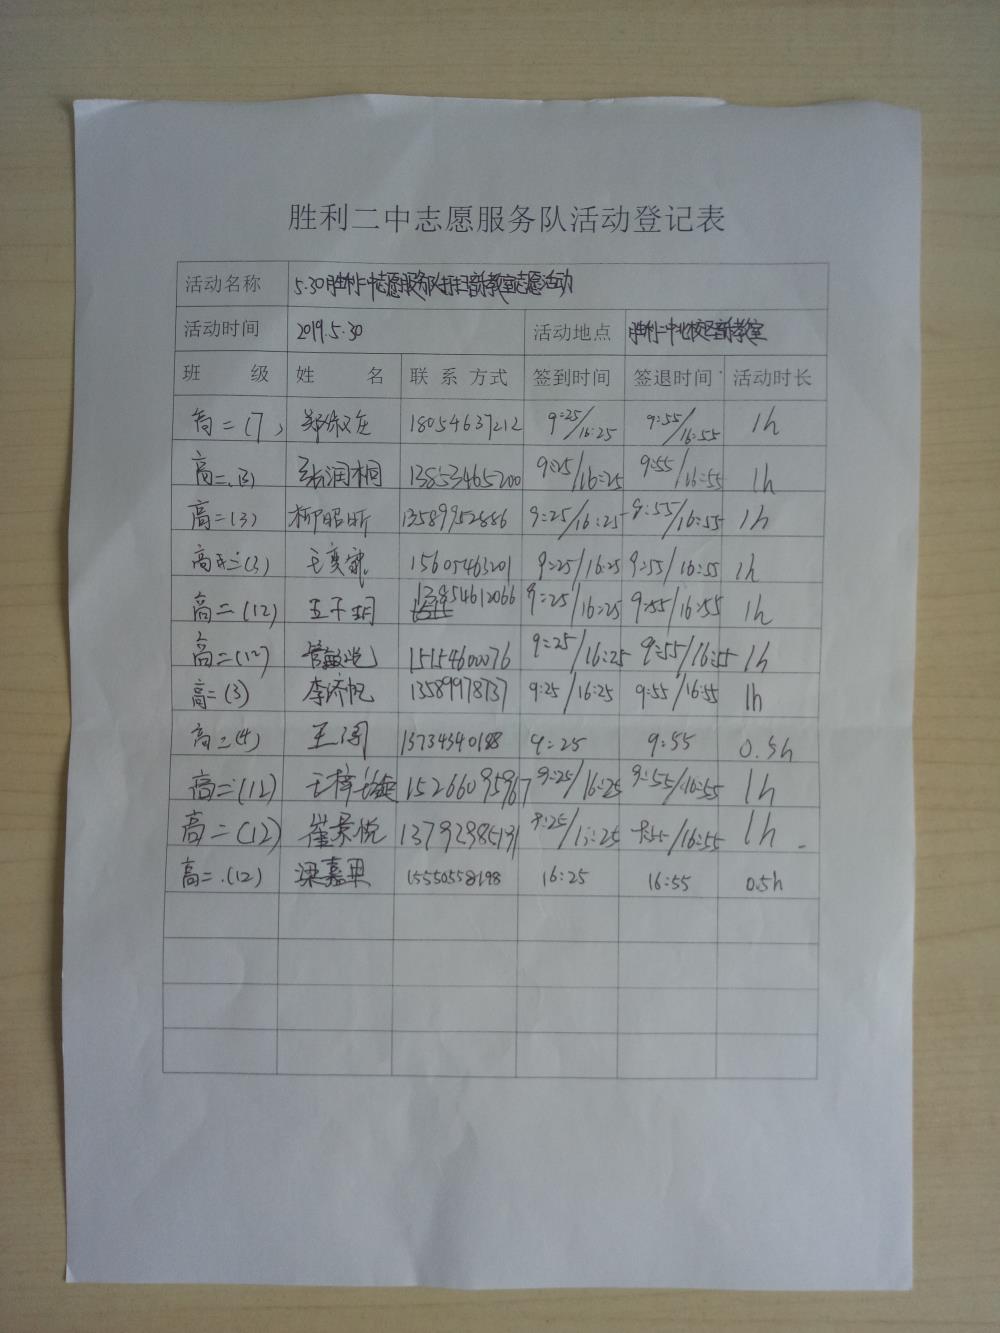 胜利二中志愿服务队活动登记表
活动名称 5.30胜利二中志愿服务队打扫新教室志愿活动
活动时间 2019.5.30 活动地点 胜利二中北校区新教室
班 级 姓 名 联 系 方式 签到时间 签退时间 活动时长
高二(7) 18054637212 9:25/16:25 9:55/16:55 1h
高二.(3) 张润桐 13853465200 9:25/16:25 9:55/16:55 1h
高二(3) 柳昭昕 13589952886 9:25/16:25 9:55/16:55 1h
高二(3) 王奕 15605463201 9:25/16:25 9:55/16:55 1h
高二(12) 王子玥 13854612066 9:25/16:25 9:55/16:55 1h
高二(12) 管敏悦 15154600076 9:25/16:25 9:55/16:55 1h
高二(3) 李济帆 13589978737 9:25/16:25 9:55/16:55 1h
高二(4) 王 13734340188 9:25 9:55 0.5h
高二(12) 王梓 15266095967 9:25/16:25 9:55/16:55 1h
高二(12) 崔景悦 13792985131 9:25/16:25 9:55/16:55 1h
高二.(12) 梁嘉 15550558198 16:25 16:55 0.5h